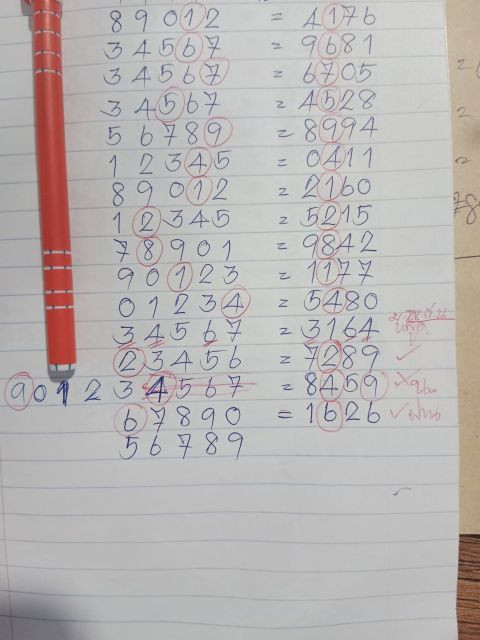 89012 = 4176
34567 = 9681
34567 = 6705
34567 = 4528
56789 = 8994
12345 = 0411
89012 = 2160
12345 = 5215
78901 = 9842
90123 = 1177
01234 = 5480
34567 = 3164
23456 = 7289 ✓
901234567 = 8459
67890 = 1626 ✓
56789